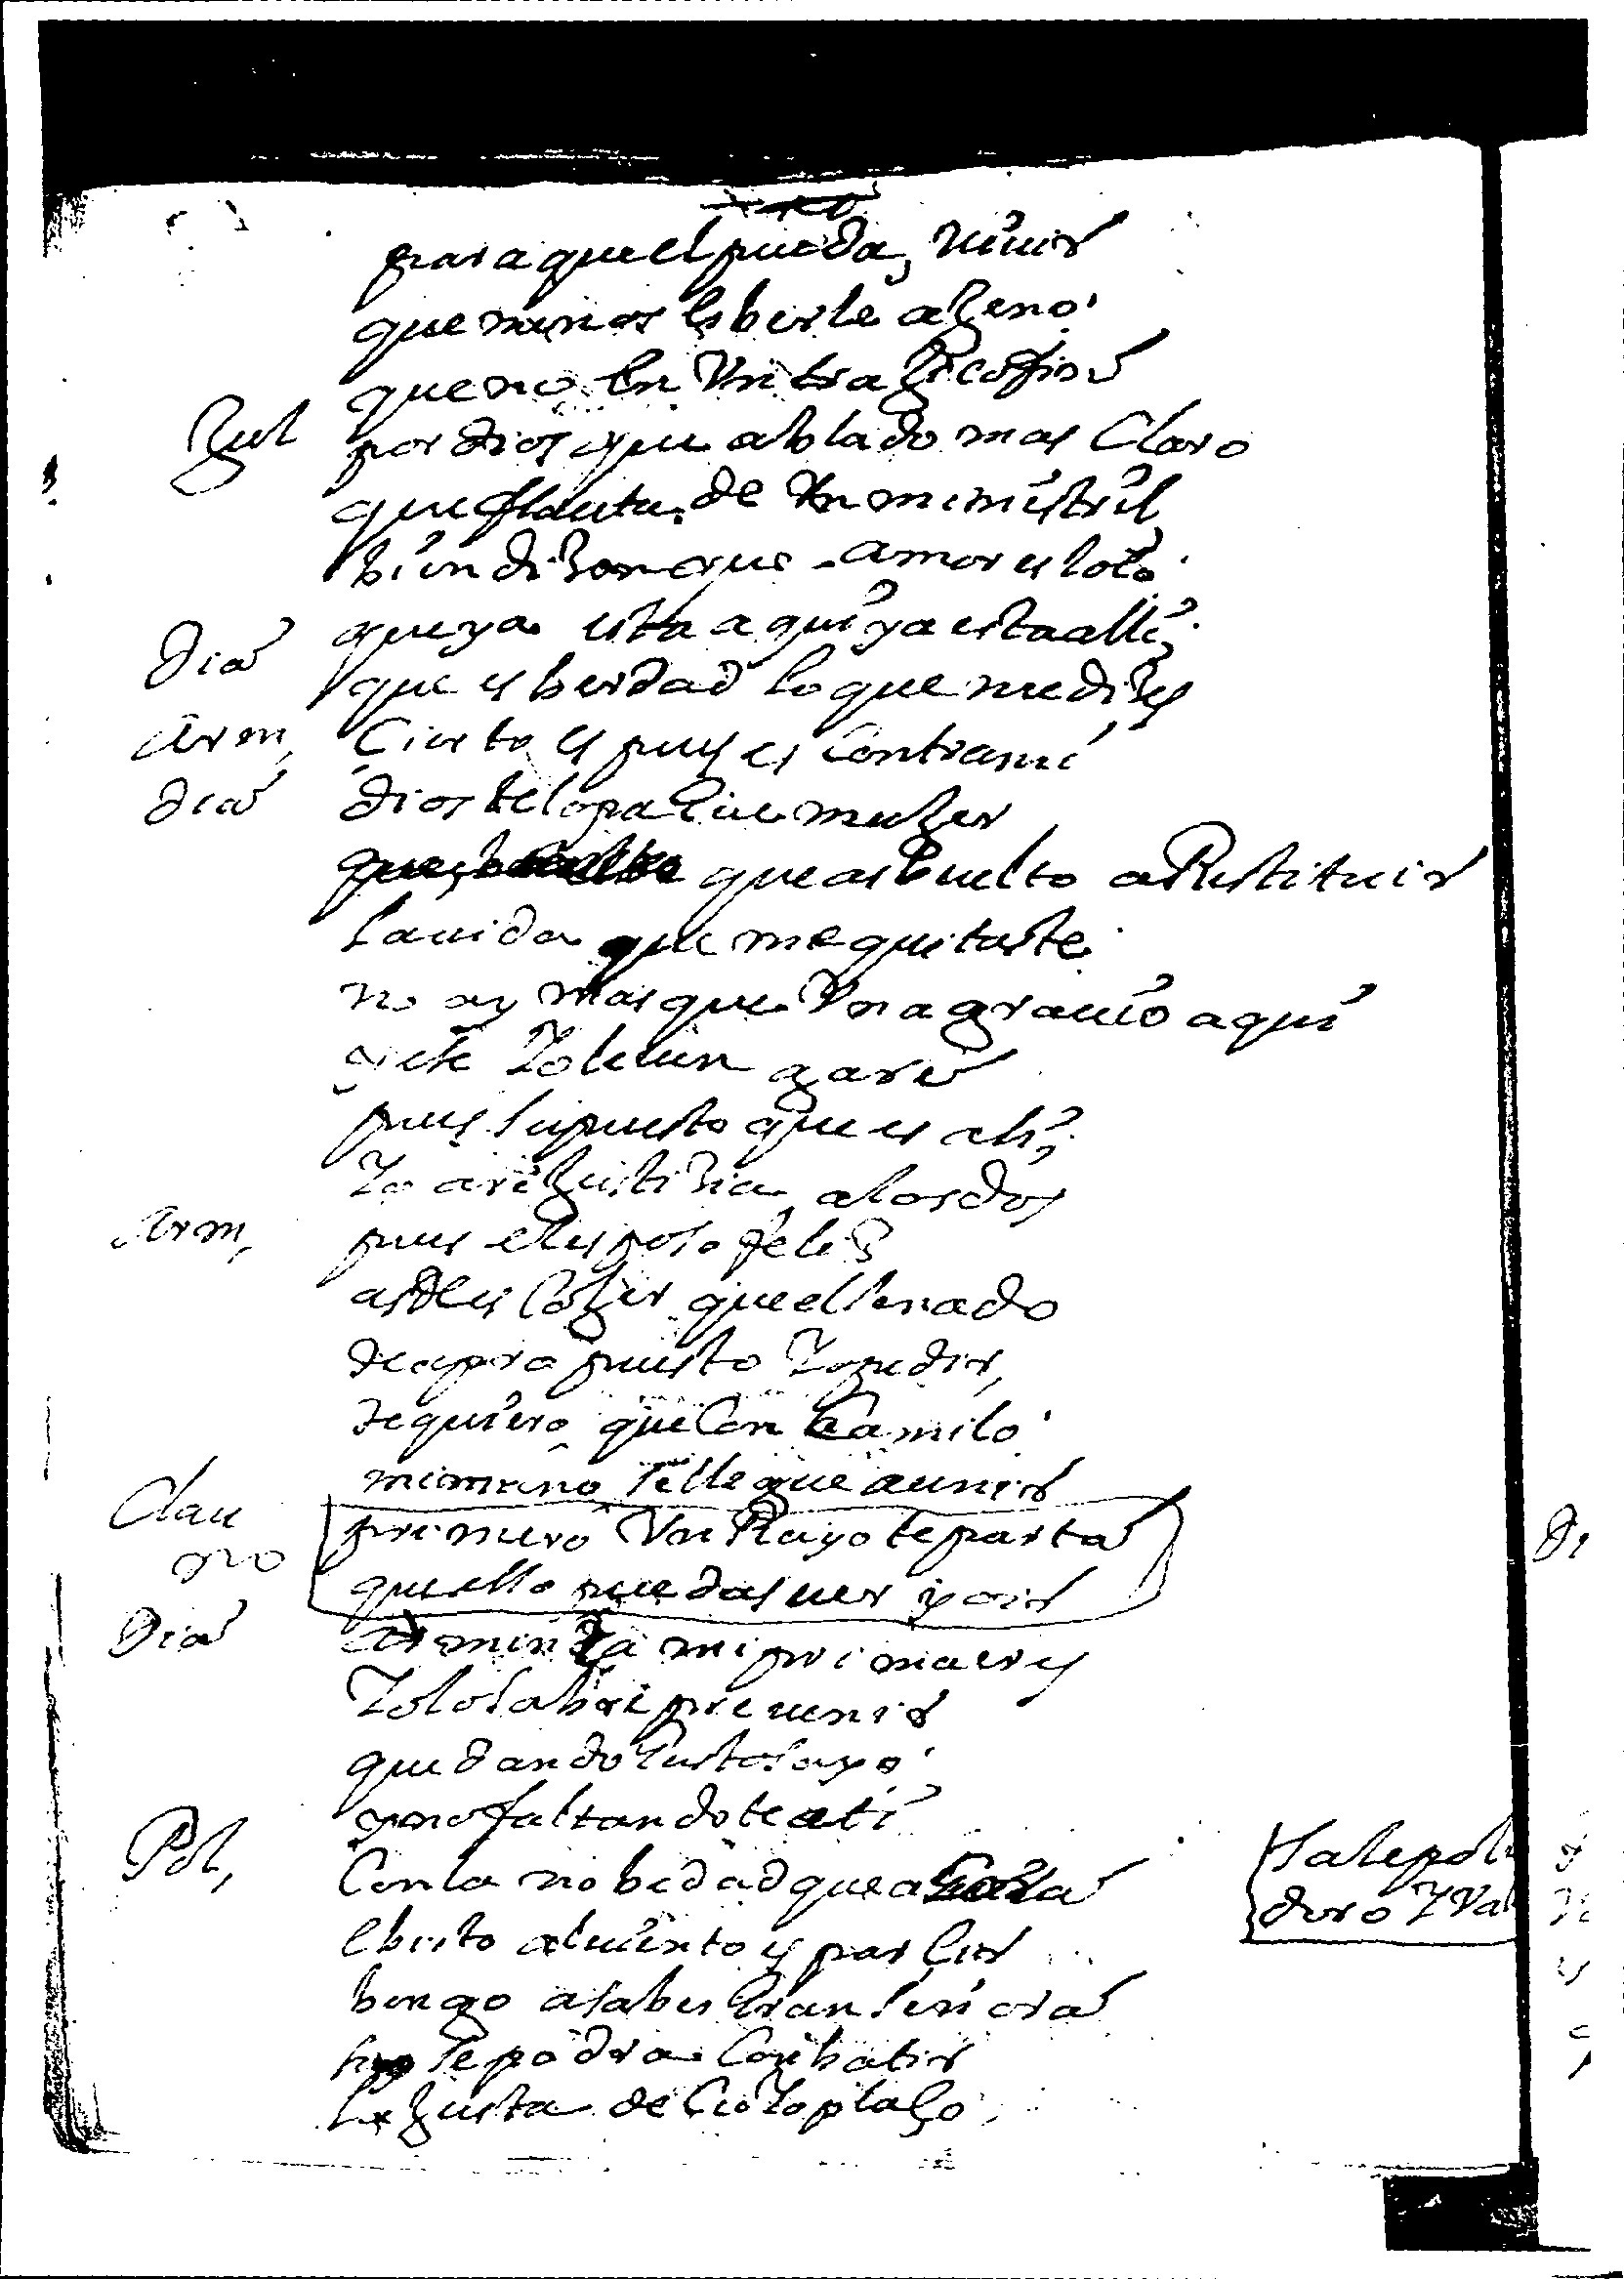 para quel pueda, viuir
que menos es berle ageno
que no en Vn tragico fin
Gul por dios que ablado mas Claro
que flauta de Vn ministril
bien dizen que amor es loco
que ya esta aqui ya esta alli,
dia que es berdad lo que me dizes
Arm, Cierto es pues es contra mi
dia dios te lo pague muger
que as buelto a Restituir
la uida que me quitaste
no ay mas que Vn agrauio aqui
este
pues supuesto que es asi,
Yo aré justizia a los dos
Arm, pues el esposo feliz
as de escoger quel senado
de a propuesto Yo pedir,
te quiero que con Camilo
mi mano se llegue a unir
Clau primero Vn Rayo te parta
que ello puedas ver y oir
Dia Arminda mi prima es
Yo lo sabré preuenir
quedando
y no faltandote a ti
Pol, Con la nobedad que aora
e bisto al uiento esparcir
bengo a saber gran señora
si se podra conbatir
la justa de cuyo plaço
Sale pol
doro Y Va